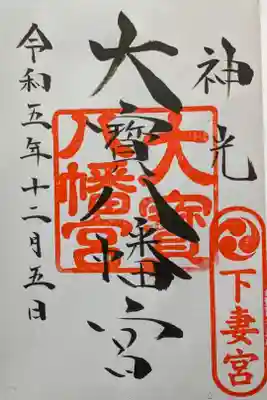 神光
下妻宮
大寳八幡宮
大寳八幡宮
令和五年十二月五日